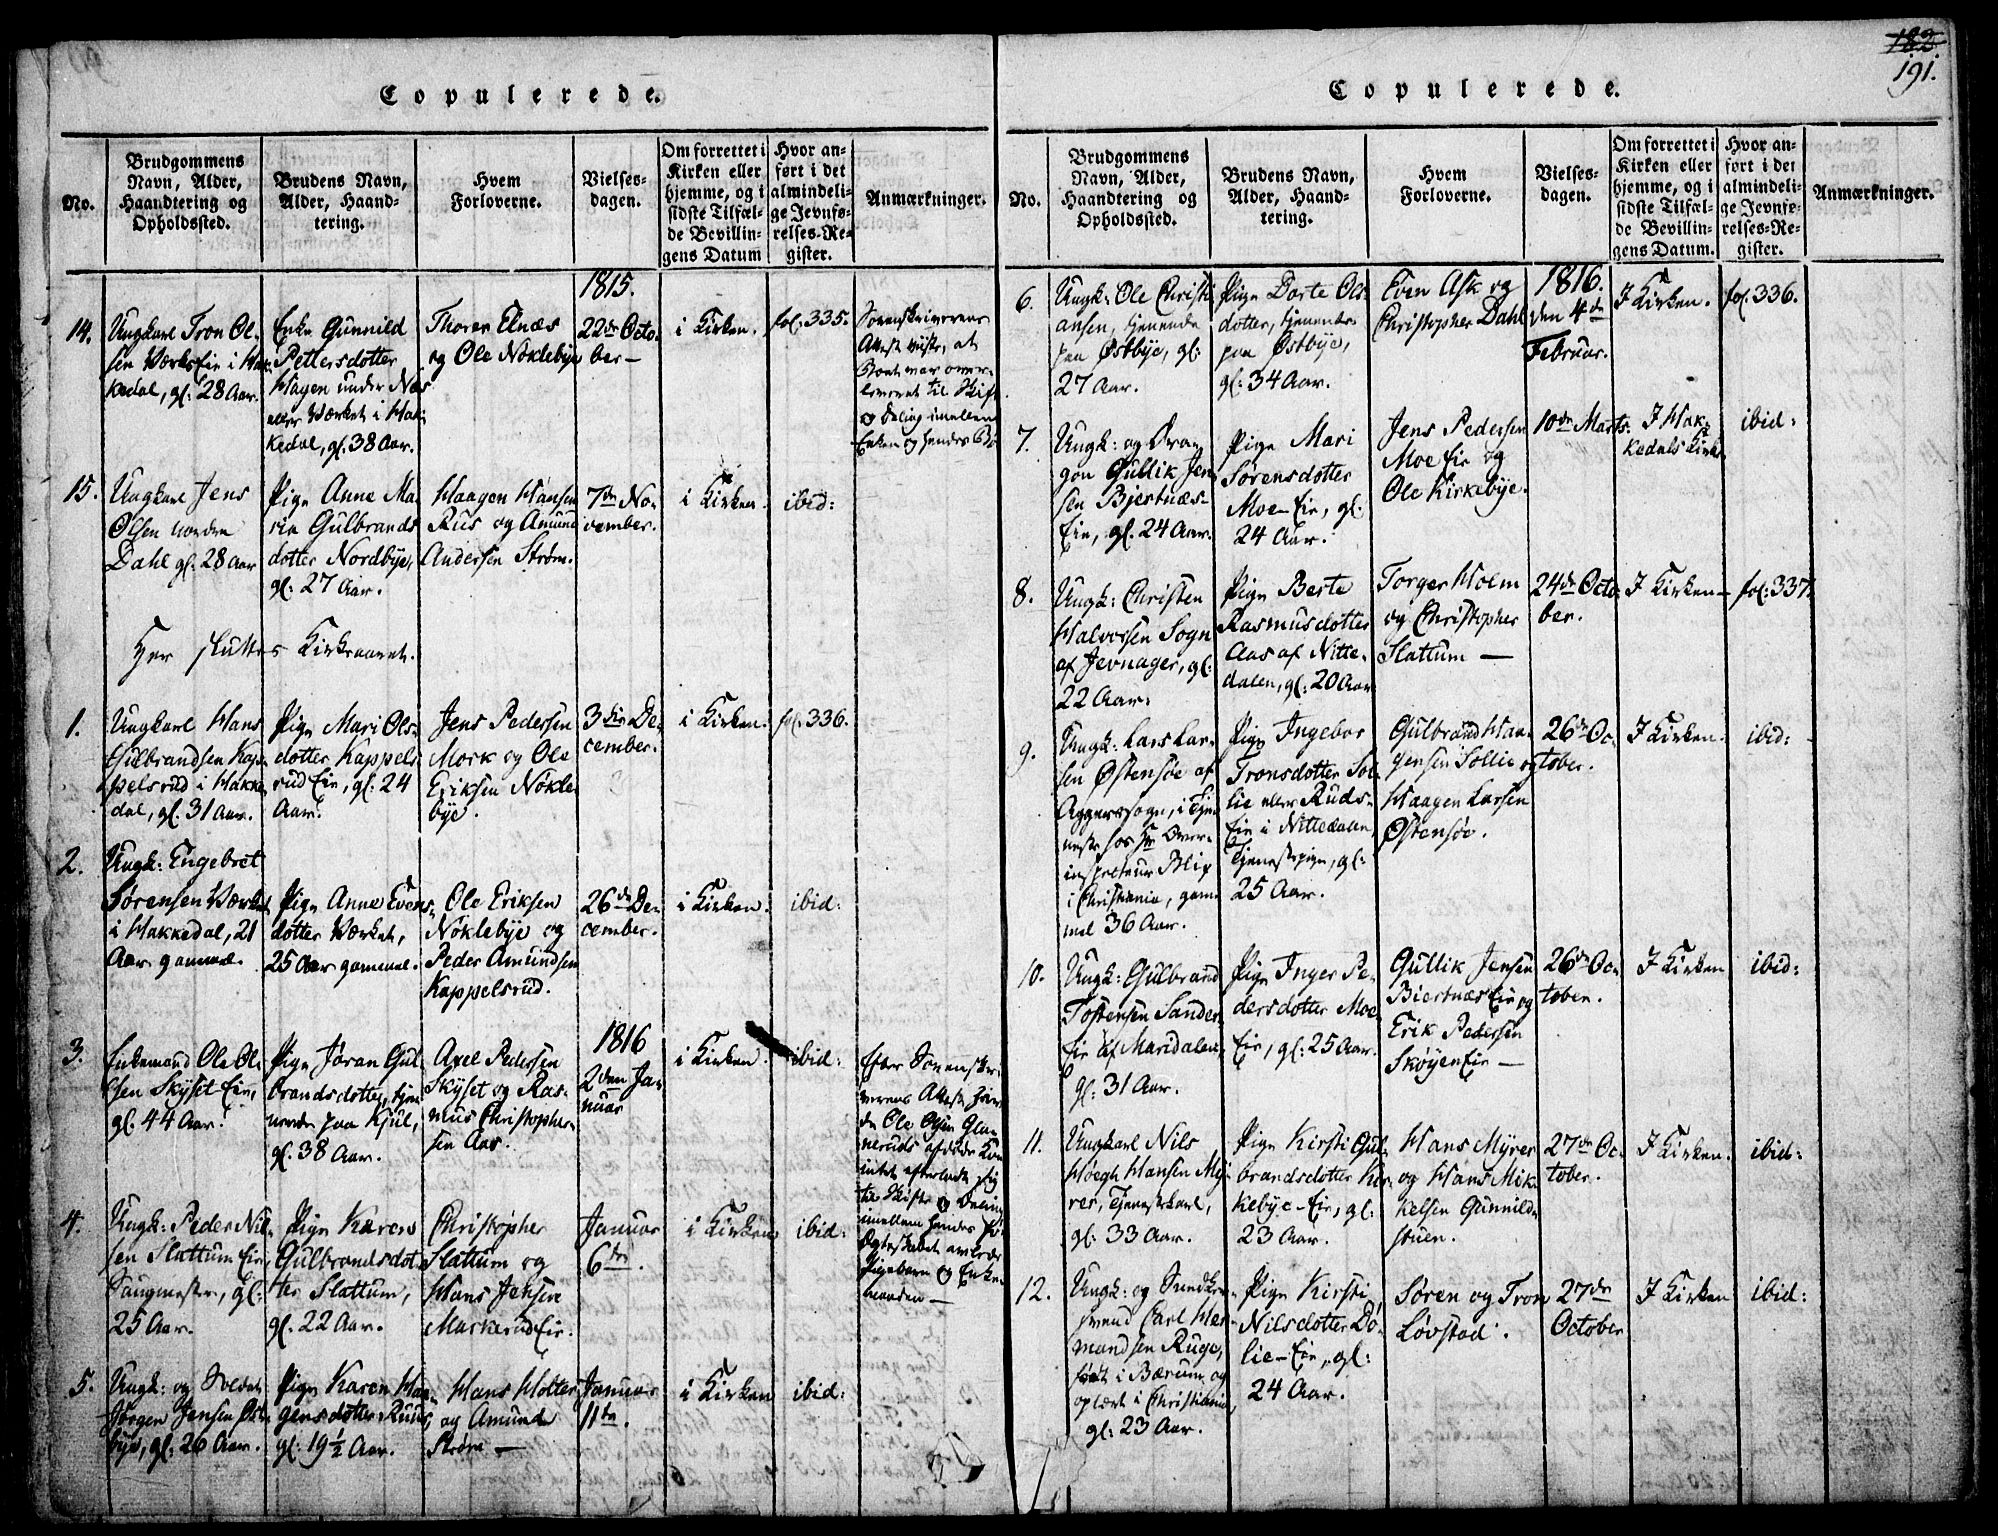 182.
191.
Copulerede.
No.
Brudgommens Navn, Alder, Haandtering og Opholdssted.
Brudens Navn, Alder, Haandtering.
Hvem Forloverne.
Vielses-dagen.
Om forrettet i Kirken eller hjemme, og i sidste Tilfælde Bevillingens Datum
Hvor anført i det almindelige Jevnførelses-Register.
Anmærkninger.
1815.
14.
Ungkarl Tron Ol-
sen Værks Eie i Hak-
kedal, gl: 28 Aar.
Enke Gunnild
Pettersdotter
Hagen under Næs
eller Værket i Hak-
kedal, gl. 38 Aar.
Thorer Elnæs
og Ole Nøklebye
22de Octo-
ber
i Kirken.
fol. 335.
Sorenskriverens
Attest viiste, at
Boet var over-
leveret til Skift
og Deling imellem
Enken og hendes
15.
Ungkarl Jens
Olsen nordre
Dahl gl. 28 Aar
Pige Anne Ma-
rie Gulbrands
dotter Nordbye,
gl: 27 Aar.
Haagen Hansen
Rus og Amund
Andersen Strøm.
7de No-
vember.
i Kirken.
ibid:
Her sluttes Kirkeaaret.
1.
Ungkarl Hans
Gulbrandsen Kap-
pelsrud i Hakke-
dal, gl. 31 Aar.
Pige Mari Ols-
dotter Kappels
rud Eie, gl: 24
Aar.
Jens Pedersen
Mork og Ole
Eriksen Nøkle-
bye.
3die De-
cember.
i Kirken.
fol. 336.
2.
Ungk: Engebret
Sørensen Værket
i Hakkedal, 21
Aar gammel.
Pige Anne Evens-
dotter Værket,
25 Aar gammel.
Ole Eriksen
Nøklebye og
Peder Amundsen
Kappelsrud.
26de De-
cember.
i Kirken.
ibid:
3.
Enkemand Ole Ol-
sen Skyset Eie,
gl. 44 Aar.
Pige Jøran Gul-
brandsdotter, tjen-
nende paa Kjul,
gl. 38 Aar.
Axel Pedersen
Skyset og Ras-
mus Christopher-
sen Aas.
1816
2den Ja-
nuar
i Kirken.
ibid:
Efter Sorenskri-
verens Attest
Ole Olsen Gla-
neruds afdøde Kone
intet efterladt sig
til Skifte og Deling
imellem hendes
Ægteskabet avlede
Pigebarn og Enke-
manden
4.
Ungk: Peder Niel-
sen Slattum Eie,
Saugmester, gl:
25 Aar.
Pige Karen
Gulbrandsdot-
ter Slattum,
gl. 22 Aar.
Christopher
Slattum og
Hans Jensen
Markerud Eie.
Januar
6te.
i Kirken
ibid:
5.
Ungk: og Soldat
Jørgen Jensen Øst-
bye, gl: 26 Aar.
Pige Karen Haa-
gensdotter Ruus,
gl: 19½ Aar.
Hans Holter
og Amund
Strøm
Januar
11te.
i Kirken
ibid:
Copulerede.
No.
Brudgommens Navn, Alder, Haandtering og Opholdssted.
Brudens Navn, Alder, Haandtering.
Hvem Forloverne.
Vielses-dagen.
Om forrettet i Kirken eller hjemme, og i sidste Tilfælde Bevillingens Datum.
Hvor anført i det almindelige Jevnførelses-Register.
Anmærkninger.
6.
Ungk: Ole Christi-
ansen, tjenende
paa Østbye, gl:
27 Aar.
Pige Dorte Ols-
dotter, tjenende
paa Østbye,
gl: 34 Aar.
Even Ask og
Christopher Dahl
1816.
den 4de
Februar.
I Kirken.
fol. 336.
7.
Ungk: og Dra-
gon Gullik Jen-
sen Bjertnæs-
Eie, gl. 24 Aar.
Pige Mari
Sørensdotter
Moe-Eie, gl:
24 Aar.
Jens Pedersen
Moe Eie og
Ole Kirkebye.
10de Marts.
I Hak-
kedals Kirke
ibid:
8.
Ungk: Christen
Halvorsen Sogn
af Jevnager, gl:
22 Aar.
Pige Berte
Rasmusdotter
Aas af Nitte-
dalen, gl: 20 Aar
Torger Holm
og Christopher
Slattum
24de Octo-
ber.
I Kirken
fol: 337.
9.
Ungk: Lars Lar-
sen Østensøe af
Aggers sogn, i Tje-
neste hos Hr Over-
inspecteur Blix
i Christiania, gam-
mel 36 Aar.
Pige Ingebor
Tronsdotter Sol-
lie eller Ruds-
Eie i Nittedalen,
Tjenestepige, gl:
25 Aar.
Gulbrand Haa-
gensen Sollie og
Haagen Larsen
Østensøe.
26de Oc-
tober.
I Kirken.
ibid:
10.
Ungk: Gulbrand
Tostensen Sander
Eie af Maridalen,
gl: 31 Aar.
Pige Inger Pe-
dersdotter Moe
Eie, gl: 25 Aar.
Gullik Jensen
Biertnæs Eie og
Erik Pedersen
Skøyen Eie
26de Oc-
tober.
I Kirken
ibid:
11.
Ungkarl Nils
Høegh Hansen My-
rer, Tjenestekarl,
gl: 33 Aar.
Pige Kirsti Gul-
brandsdotter Kir-
kebye-Eie, gl:
23 Aar.
Hans Myrer
og Hans Mik-
kelsen Gunnilds
stuen.
27de Oc-
tober.
I Kirken.
ibid:
12.
Ungk: og
svend Carl Her-
mandsen Ruge,
født i Bærum og
oplært i Christiania,
gl: 23 Aar.
Pige Kirsti
Nilsdotter Dø-
lie-Eie, gl:
24 Aar.
Søren og Tron
Løvstad.
27de
October
I Kirken
ibid: